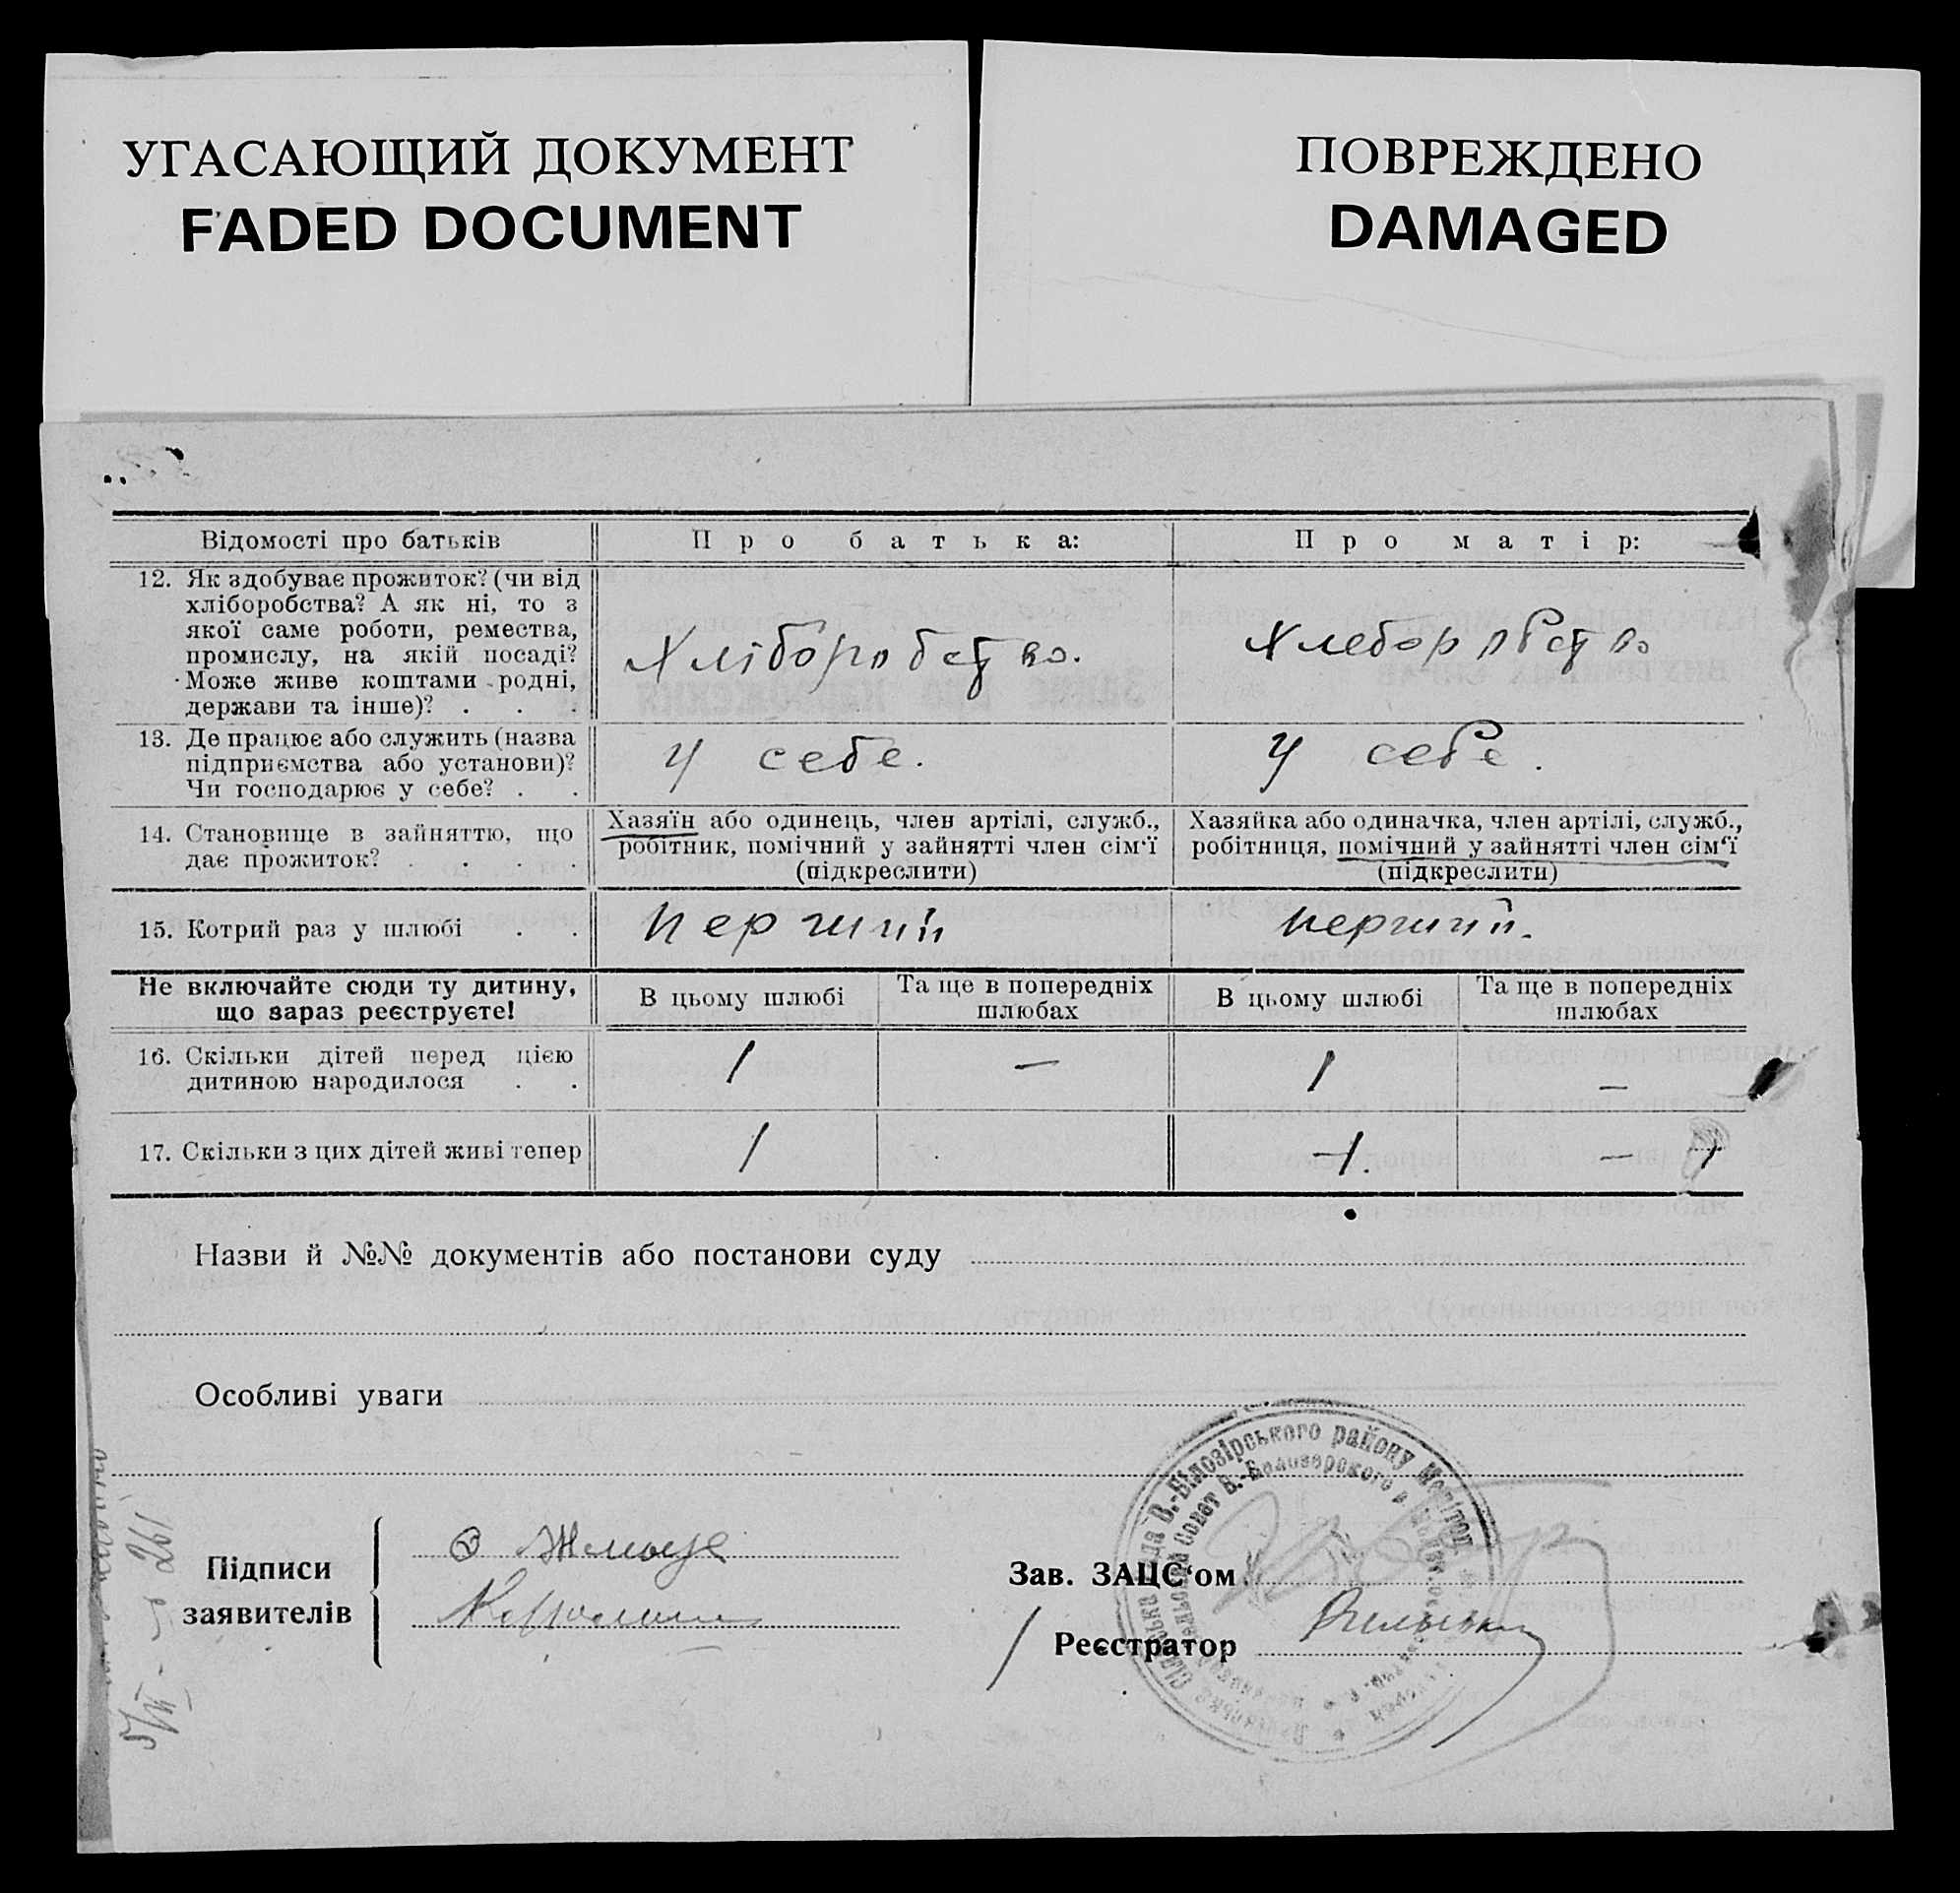 УГАСАЮЩИЙ ДОКУМЕНТ
FADED DOCUMENT
ПОВРЕЖДЕНО
DAMAGED
Відомості про батьків
Про батька:
Про матір:
12. Як здобуває прожиток? (чи від
хліборобства? А як ні, то з
якої саме роботи, ремества,
промислу, на якій посаді?
Може живе коштами родні,
держави та інше)? . . .
Хліборобство.
Хлеборобство
13. Де працює або служить (назва
підприємства або установи)?
Чи господарює у себе? . .
У себе.
У себе.
14. Становище в зайняттю, що
дає прожиток? . . . .
Хазяїн або одинець, член артілі, служб.,
робітник, помічний у зайнятті член сім‘ї
(підкреслити)
Хазяйка або одиначка, член артілі, служб.,
робітниця, помічний у зайнятті член сім‘ї
(підкреслити)
15. Котрий раз у шлюбі . .
перший
перший.
Не включайте сюди ту дитину,
що зараз реєструєте!
В цьому шлюбі
Та ще в попередніх
шлюбах
В цьому шлюбі
Та ще в попередніх
шлюбах
16. Скільки дітей перед цією
дитиною народилося . .
1
—
1
—
17. Скільки з цих дітей живі тепер
1
1.
—
Назви й №№ документів або постанови суду
Особливі уваги
Підписи
заявителів
Зав. ЗАЦС‘ом
Реєстратор
В.-Білозірського району Мелітоп.
Совет В.-Белозерского
261